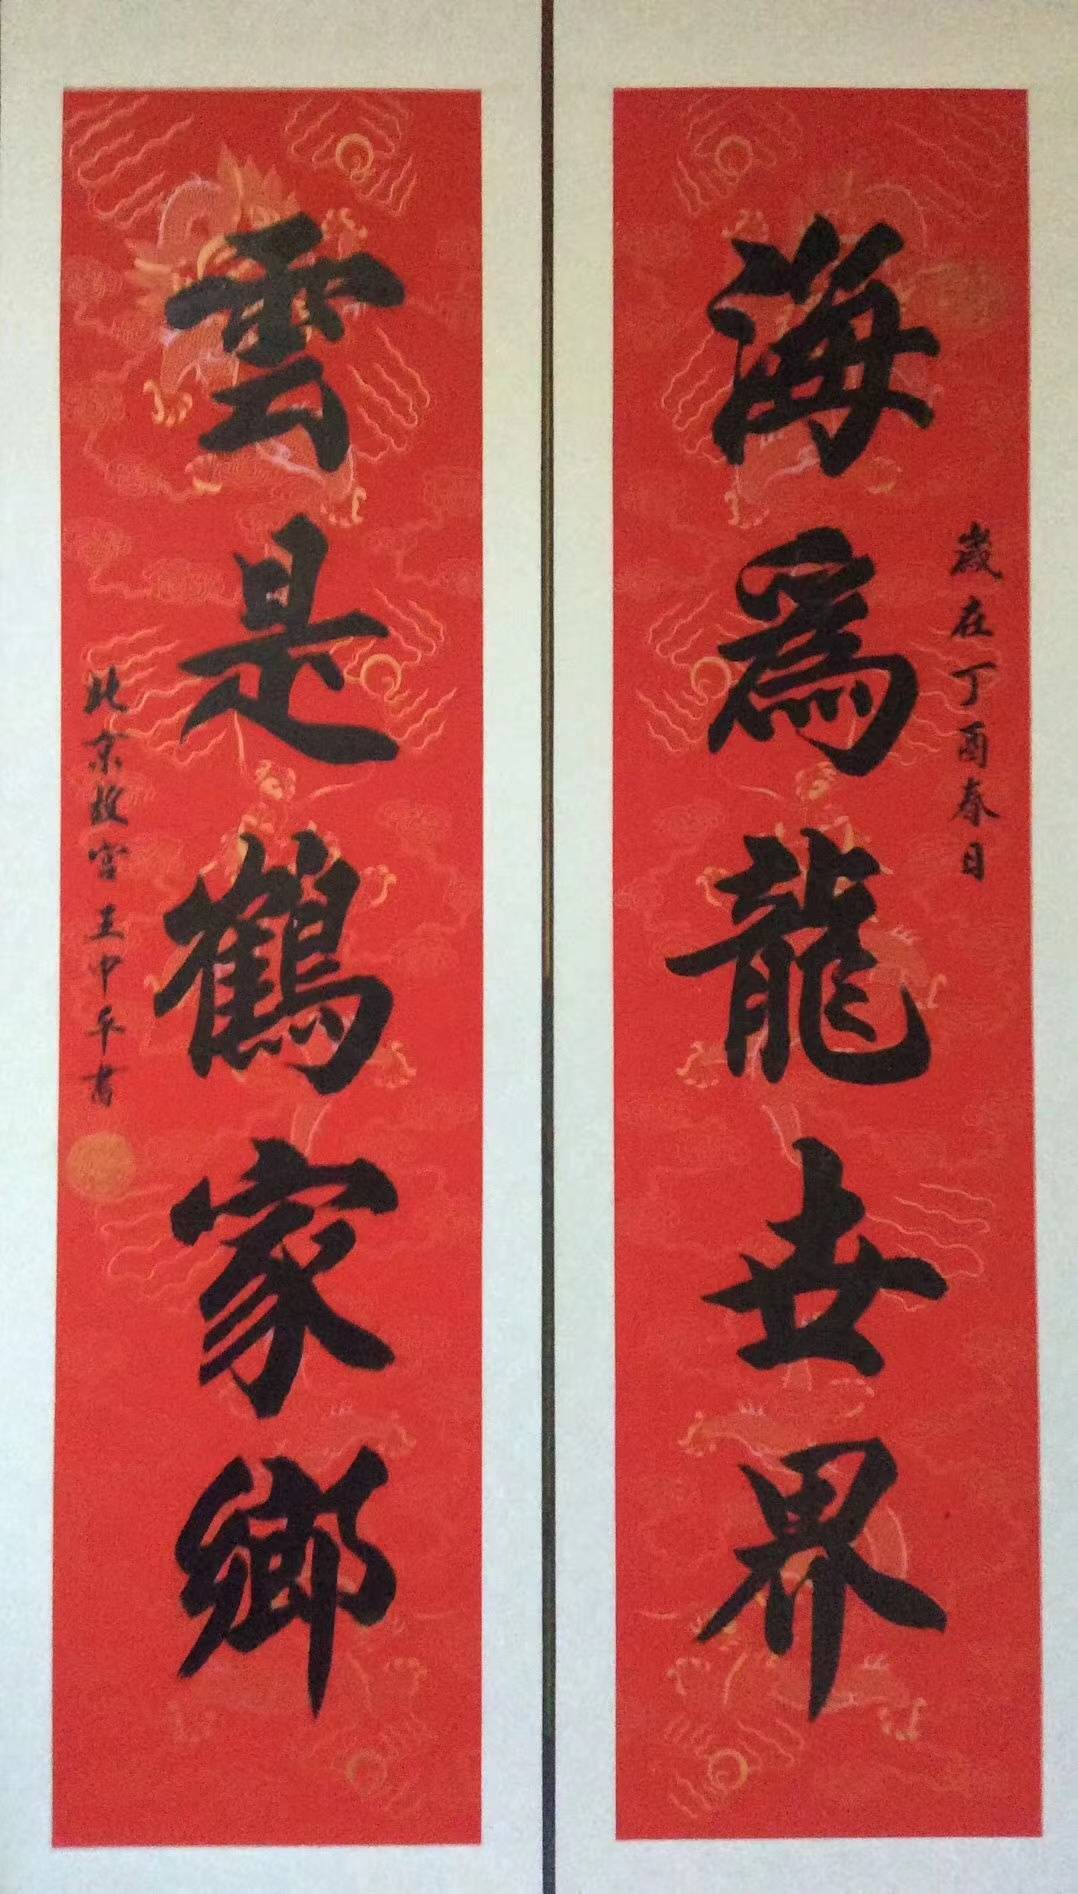 歲在丁酉春日
海為龍世界
雲是鶴家鄉
北京故宮王中平書